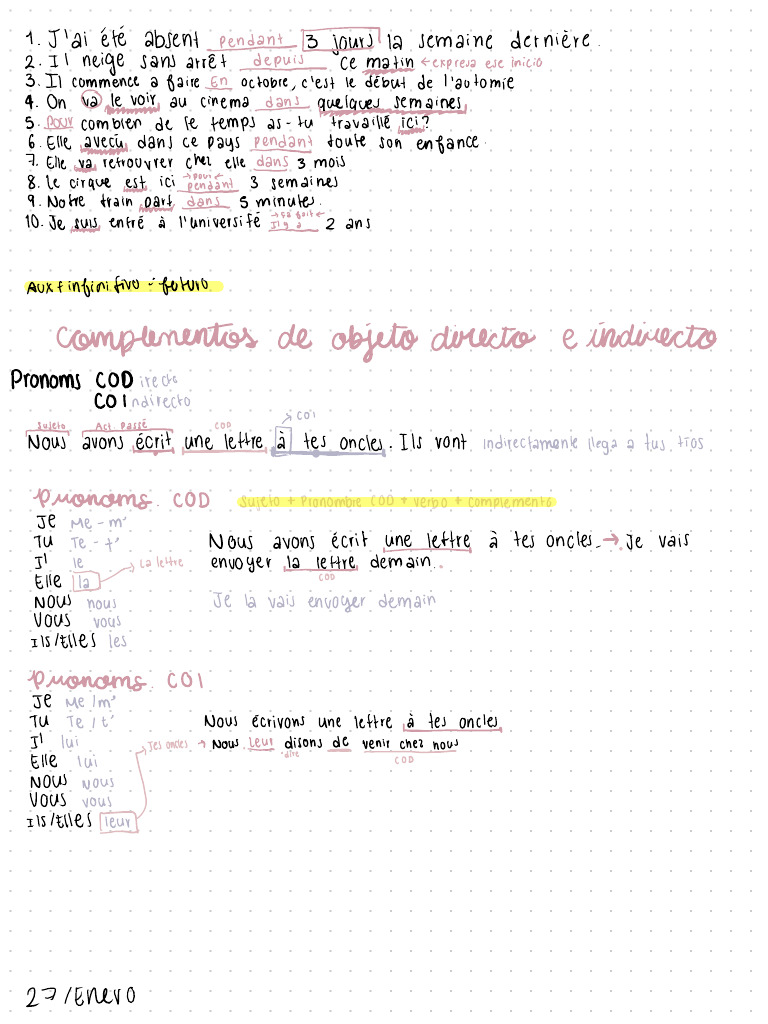 1. J'ai été absent pendant 3 jours la semaine dernière.
2. Il neige sans arrêt depuis ce matin ← expresa ese inicio
3. Il commence a faire En octobre, c'est le début de l'automie
4. On va le voir au cinema dans quelques semaines.
5. Pour combien de le temps as-tu travaillé ici?
6. Elle avecu dans ce pays pendant toute son enfance.
7. Elle va retrouvrer chez elle dans 3 mois
→ pour ←
8. le cirque est ici pendant 3 semaines
9. Notre train part dans 5 minutes.
10. Je suis entré à l'université Il y a 2 ans
Aux + infinitivo = futuro
Complementos de objeto directo e indirecto
Pronoms COD irecto
COI ndirecto
Sujeto Act. Passé COD → COI
Nous avons écrit une lettre à tes oncles. Ils vont indirectamente llega a tus tíos
Pronoms COD Sujeto + Pronombre COD + verbo + complemento
Je Me - m'
Tu Te - t' Nous avons écrit une lettre à tes oncles → je vais
Il le envoyer la lettre demain.
Elle la → La lettre COD
Nous nous Je la vais envoyer demain
Vous vous
Ils/Elles les
Pronoms COI
Je Me / m'
Tu Te / t' Nous écrivons une lettre à tes oncles
Il lui → Tes oncles → Nous leur disons de venir chez nous
Elle lui dire COD
Nous nous
Vous vous
Ils/Elles leur
27/Enero